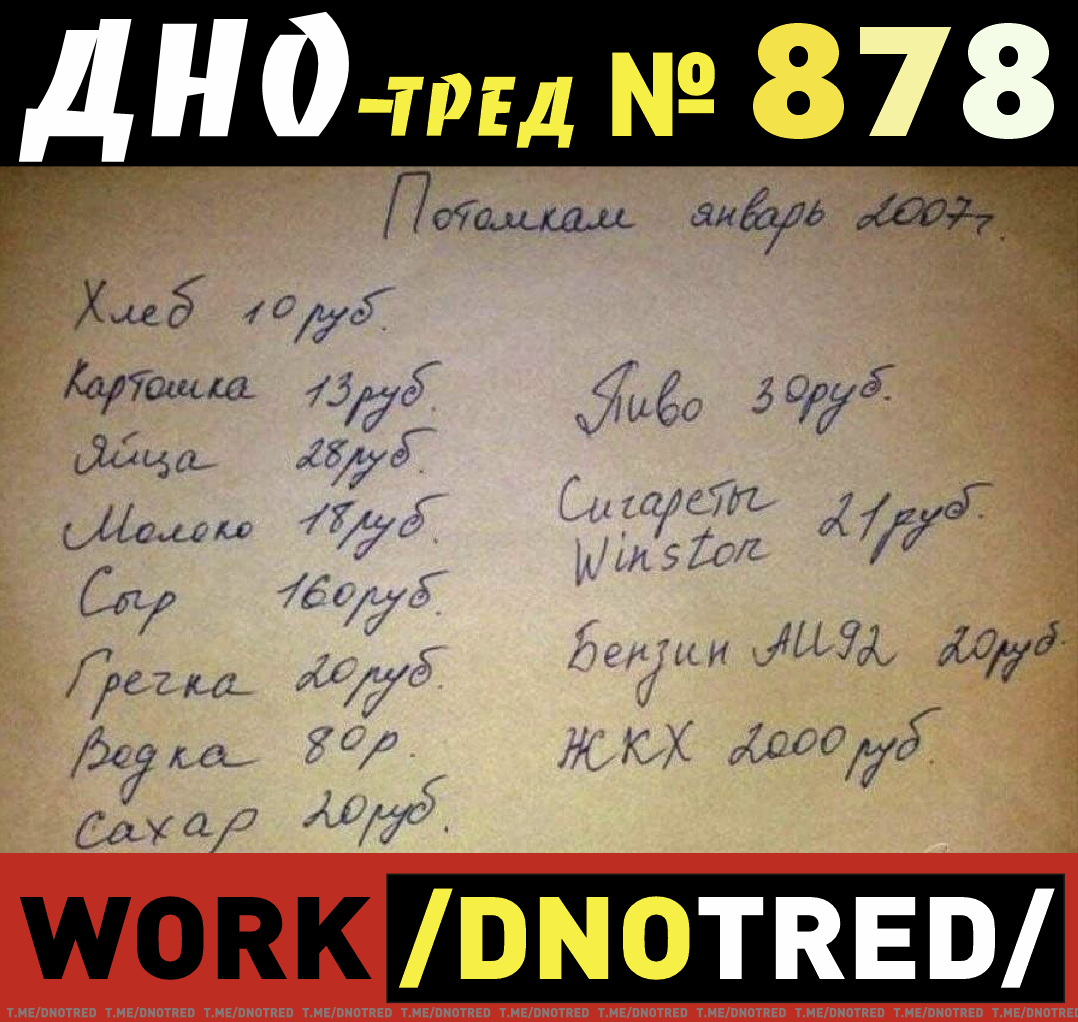 ДНО-ТРЕД № 878
Потомкам январь 2007г.
Хлеб 10 руб.
Картошка 13руб.
Яйца 28руб.
Молоко 18руб.
Сыр 160руб.
Гречка 20руб.
Водка 80р.
Сахар 20руб.
Пиво 30руб.
Сигареты
Winston 21руб.
Бензин АИ92 20руб.
ЖКХ 2000 руб.
WORK /DNOTRED/
T.ME/DNOTRED T.ME/DNOTRED T.ME/DNOTRED T.ME/DNOTRED T.ME/DNOTRED T.ME/DNOTRED T.ME/DNOTRED T.ME/DNOTRED T.ME/DNOTRED T.ME/DNOTRED T.ME/DNOTRED